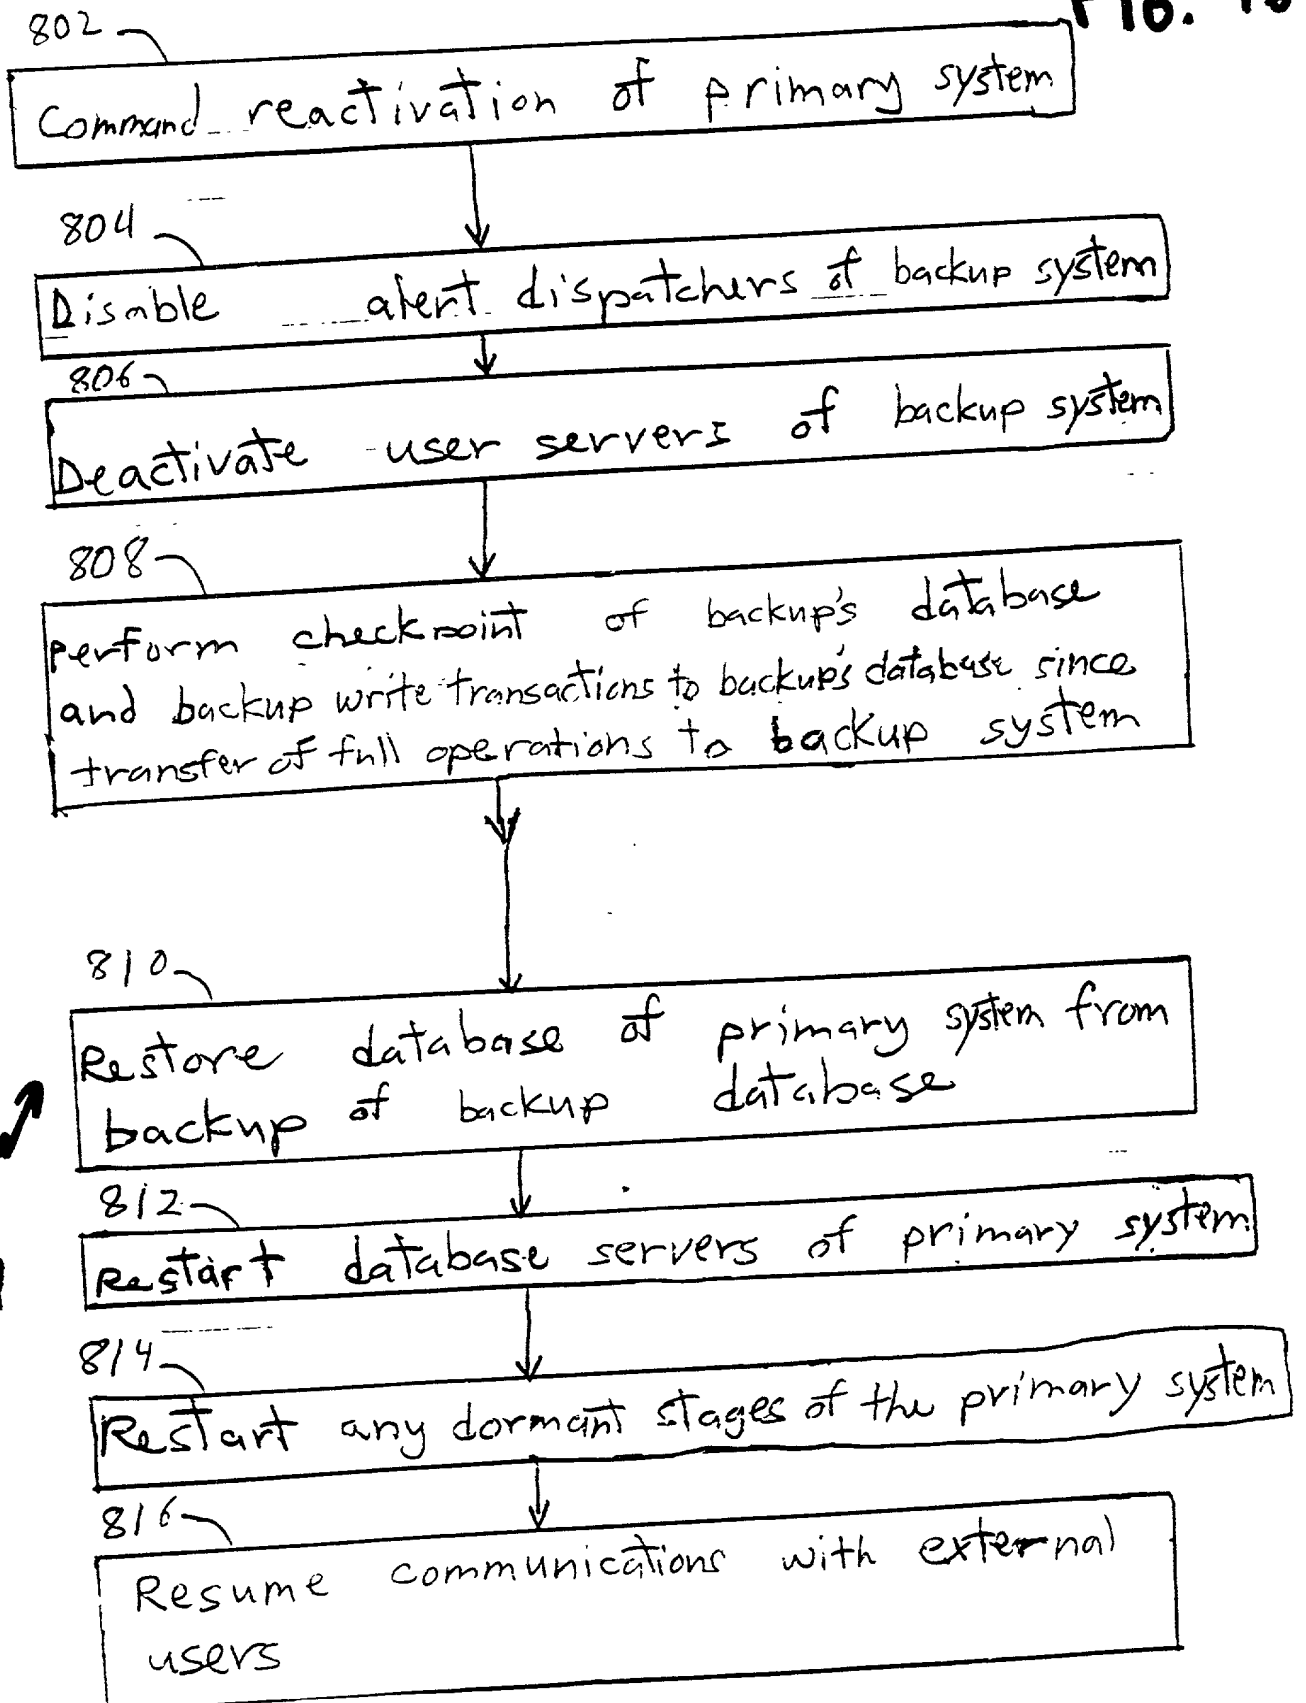 FIG.
802
Command reactivation of primary system
804
Disable alert dispatchers of backup system
806
Deactivate user servers of backup system
808
Perform checkpoint of backup's database
and backup write transactions to backup's database since
transfer of full operations to backup system
810
Restore database of primary system from
backup of backup database
812
Restart database servers of primary system
814
Restart any dormant stages of the primary system
816
Resume communications with external
users